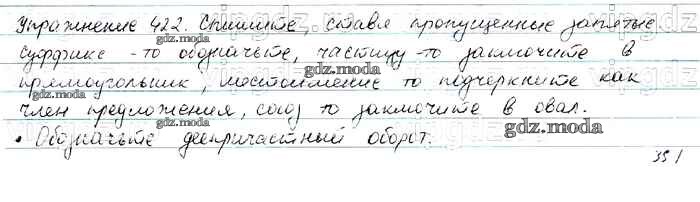 Упражнение 422. Спишите, ставя пропущенные запятые
Суффикс -то обозначьте, частицу -то заключите в
прямоугольник, местоимение то подчеркните как
член предложения, союз то заключите в овал.
• Обозначьте деепричастный оборот.
351
gdz.moda
gdz.moda
gdz.moda
gdz.moda
gdz.moda